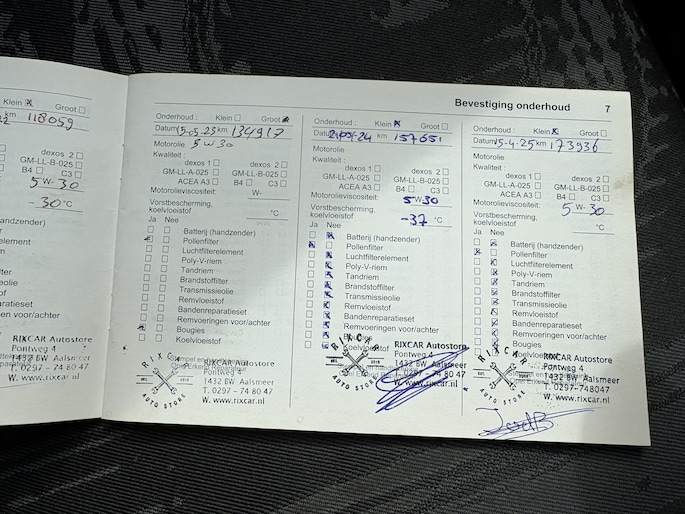 Bevestiging onderhoud 7
Klein ☒ Groot ☐
km 118059
dexos 2 ☐
GM-LL-B-025 ☐
B4 ☐ C3 ☐
5 W- 30
-30 °C
Onderhoud : Klein ☐ Groot ☒
Datum 15-05-23 km 134917
Motorolie 5 W 30
Kwaliteit :
dexos 1 ☐ dexos 2 ☐
GM-LL-A-025 ☐ GM-LL-B-025 ☐
ACEA A3 ☐ B4 ☐ C3 ☐
Motorolieviscositeit: W-
Vorstbescherming,
koelvloeistof °C
Ja Nee
Batterij (handzender)
Pollenfilter
Luchtfilterelement
Poly-V-riem
Tandriem
Brandstoffilter
Transmissieolie
Remvloeistof
Bandenreparatieset
Remvoeringen voor/achter
Bougies
Koelvloeistof
RIXCAR
AUTO STORE
RIXCAR Autostore
Pontweg 4
1432 BW Aalsmeer
T. 0297 - 74 80 47
W. www.rixcar.nl
Onderhoud : Klein ☒ Groot ☐
Datum 05-24 km 157651
Motorolie
Kwaliteit :
dexos 1 ☐ dexos 2 ☐
GM-LL-A-025 ☐ GM-LL-B-025 ☐
ACEA A3 ☐ B4 ☐ C3 ☐
Motorolieviscositeit: 5 W- 30
Vorstbescherming,
koelvloeistof -37 °C
Ja Nee
Batterij (handzender)
Pollenfilter
Luchtfilterelement
Poly-V-riem
Tandriem
Brandstoffilter
Transmissieolie
Remvloeistof
Bandenreparatieset
Remvoeringen voor/achter
Bougies
Koelvloeistof
RIXCAR
AUTO STORE
RIXCAR Autostore
Pontweg 4
1432 BW Aalsmeer
T. 0297 - 74 80 47
W. www.rixcar.nl
Onderhoud : Klein ☒ Groot ☐
Datum 15-4-25 km 173936
Motorolie
Kwaliteit :
dexos 1 ☐ dexos 2 ☐
GM-LL-A-025 ☐ GM-LL-B-025 ☐
ACEA A3 ☐ B4 ☐ C3 ☐
Motorolieviscositeit: 5 W- 30
Vorstbescherming,
koelvloeistof °C
Ja Nee
Batterij (handzender)
Pollenfilter
Luchtfilterelement
Poly-V-riem
Tandriem
Brandstoffilter
Transmissieolie
Remvloeistof
Bandenreparatieset
Remvoeringen voor/achter
Bougies
Koelvloeistof
RIXCAR
AUTO STORE
RIXCAR Autostore
Pontweg 4
1432 BW Aalsmeer
T. 0297-748047
W. www.rixcar.nl